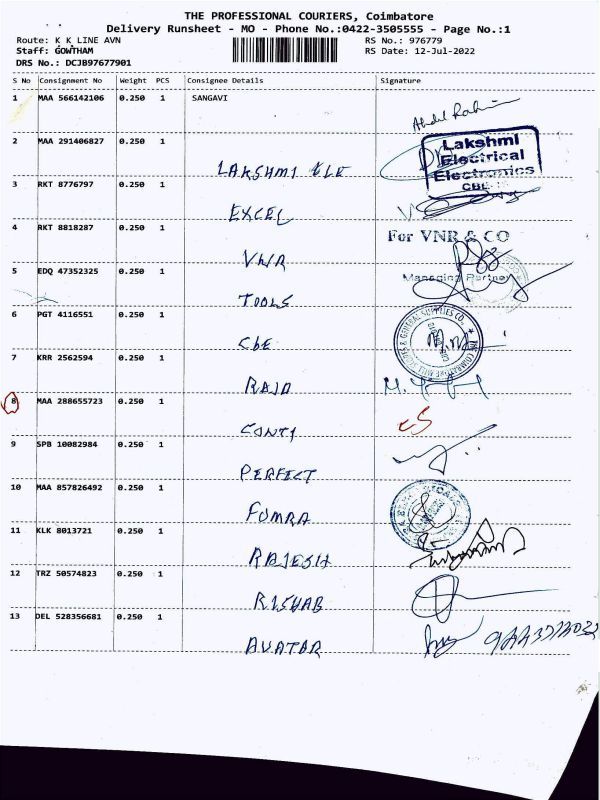 THE PROFESSIONAL COURIERS, Coimbatore
Delivery Runsheet - MO - Phone No.:0422-3505555 - Page No.:1
Route: K K LINE AVN RS No.: 976779
Staff: GOWTHAM RS Date: 12-Jul-2022
DRS No.: DCJB97677901
S No Consignment No Weight PCS Consignee Details Signature
1 MAA 566142106 0.250 1 SANGAVI
Abdul Rahim
2 MAA 291406827 0.250 1
Lakshmi
Electrical
Electronics
CBE
LAKSHMI ELE
3 RKT 8776797 0.250 1
EXCEL
4 RKT 8818287 0.250 1
For VNR & CO
VNR
5 EDQ 47352325 0.250 1
Managing Partner
TOOLS
6 PGT 4116551 0.250 1
CBE
7 KRR 2562594 0.250 1
RAJA
8 MAA 288655723 0.250 1
CS
CONTI
9 SPB 10082984 0.250 1
PERFECT
10 MAA 857826492 0.250 1
FOMRA
11 KLK 8013721 0.250 1
RAJESH
12 TRZ 50574823 0.250 1
RISHAB
13 DEL 528356681 0.250 1
AVATAR